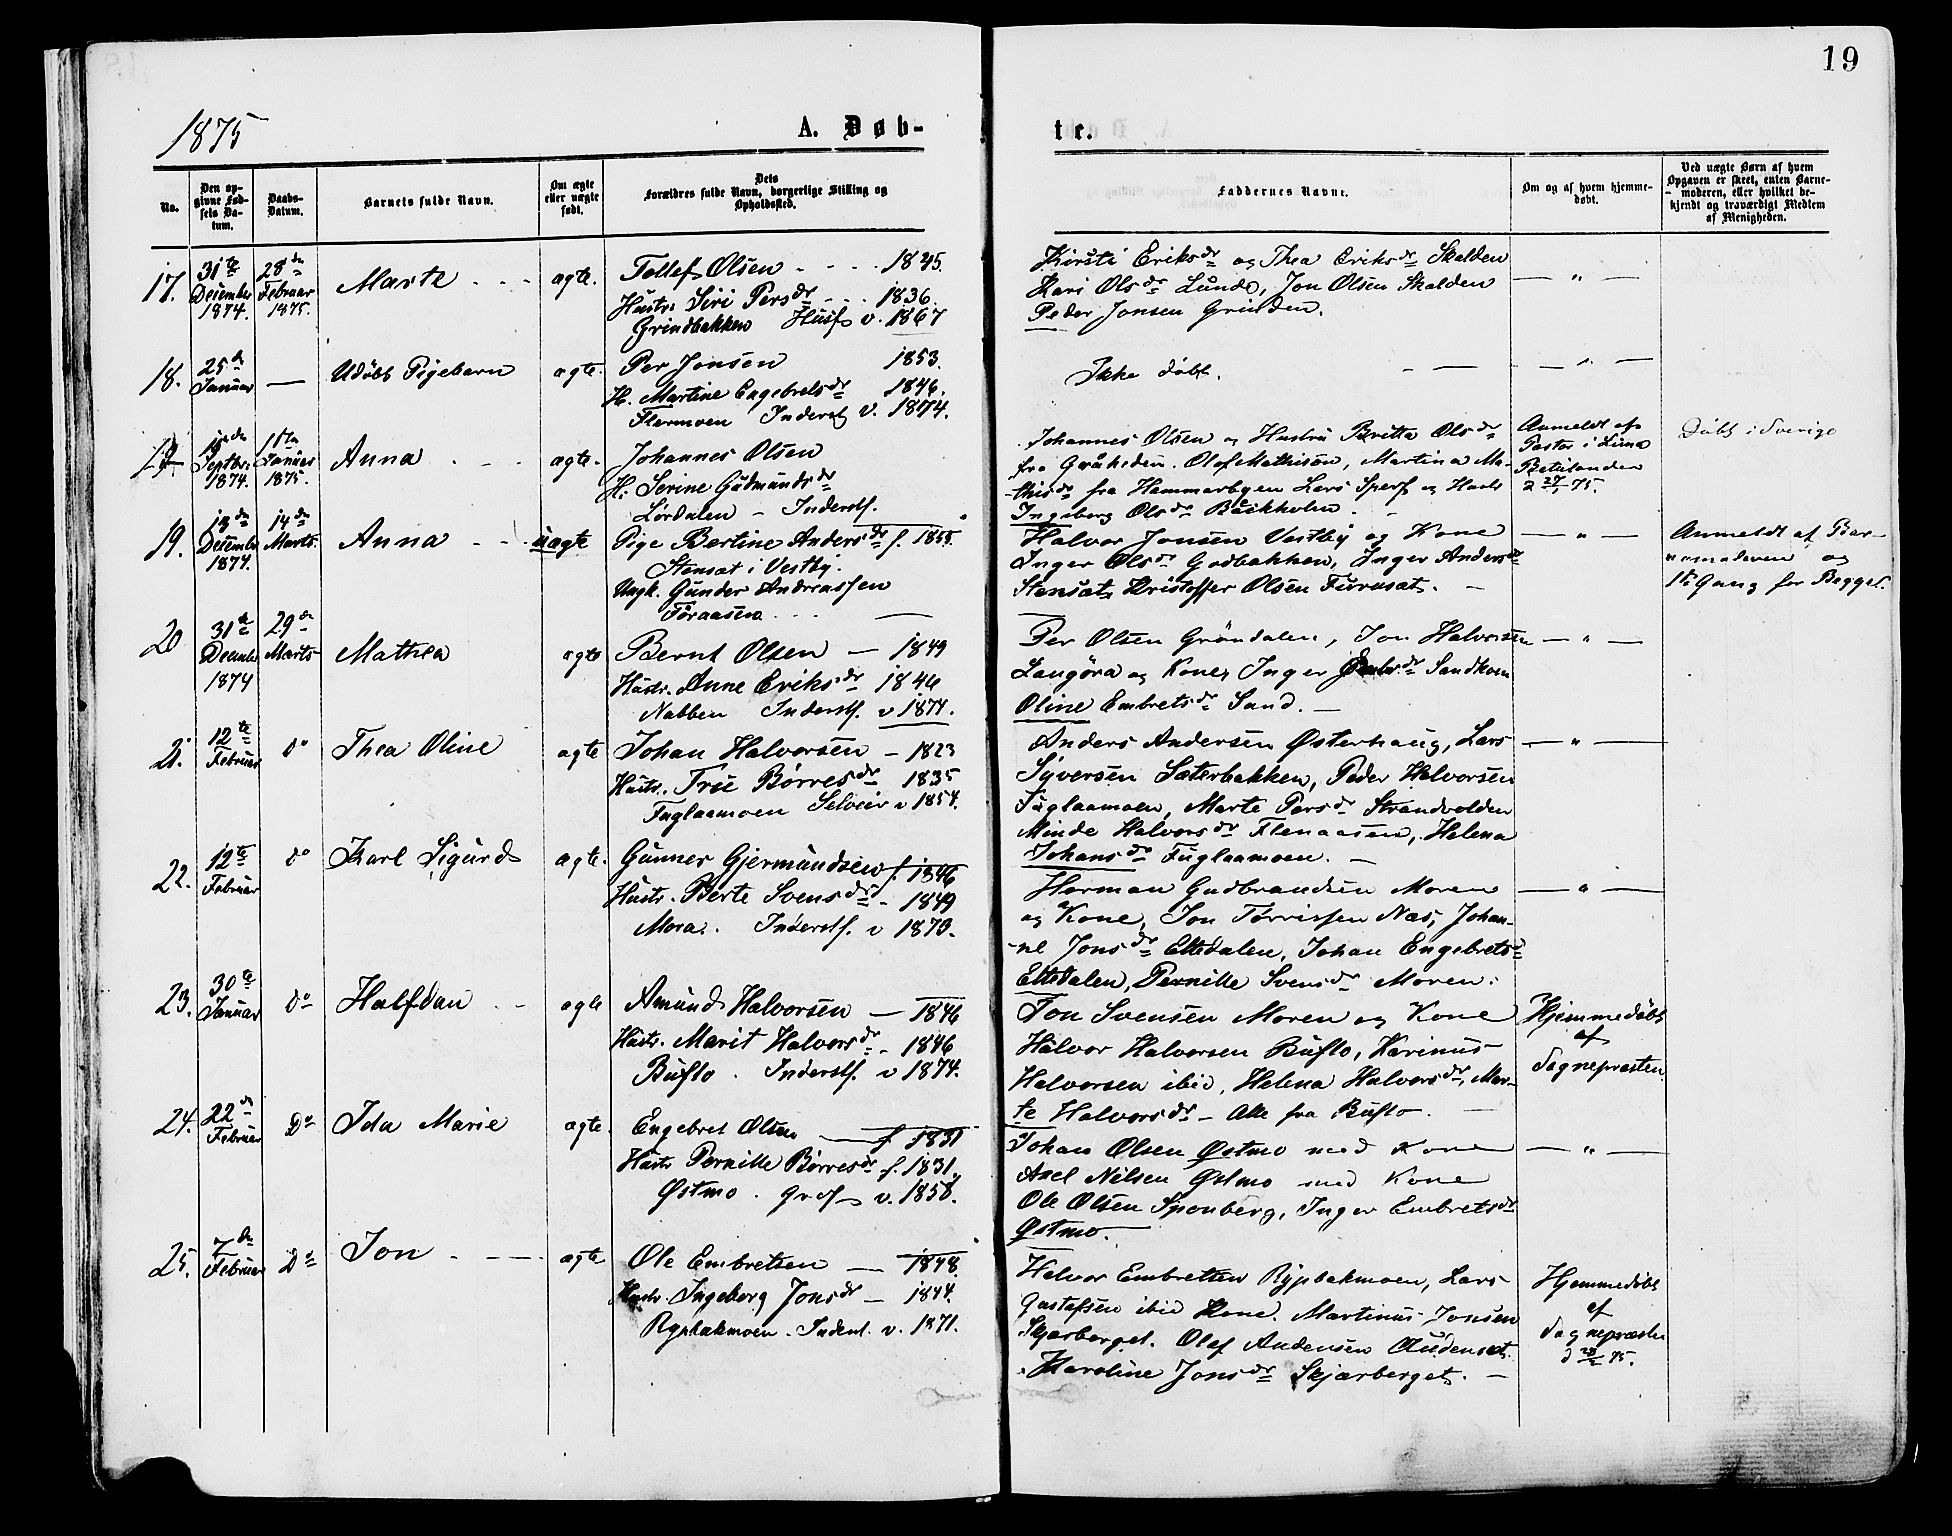 19
1875
A. Døb-
te.
No.
Den op-
givne Fød-
sels Da-
tum.
Daabs-
Datum.
Barnets fulde Navn.
Om ægte
eller uægte
født.
Dets
Forældres fulde Navn, borgerlige Stilling og
Opholdssted.
Faddernes Navne.
Om og af hvem hjemme-
døbt.
Ved uægte Børn af hvem
Opgaven er skeet, enten Barne-
moderen, eller hvilket be-
kjendt og troværdigt Medlem
af Menigheden.
17.
31te
December
1874.
28de
Februar
1875.
Marte
ægte.
Tollef Olsen 1845.
Hustr. Siri Persdr 1836.
Grindbakken Husf v. 1867
Kirsti Eriksdr og Thea Eriksdr Skalden
Kari Olsdr Lunde, Jon Olsen Skalden
Peder Jonsen Grinden.
— " —
18.
25de
Januar
—
Udøbt Pigebarn
ægte.
Per Jonsen 1853.
H. Martine Engebretsdr 1846.
Flermoen Inderst v. 1874.
Ikke døbt.
— " —
Septbr.
1874.
Januar
1875.
Anna
ægte.
Johannes Olsen
H: Serine Gudmundsdr
Lørdalen – Inderstf.
Johannes Olsen og Hustru Britta Olsdr
fra Gråheden. Olof Mathison, Martina Ma-
thisdr fra Hammarbyen Lars Sperf og Hustr
Ingeborg Olsdr Backholen.
Anmeldt af
Pastor i Lima
27 75.
Døbt i Sverige
19.
13de
December
1874.
14de
Marts.
Anna
uægte
Pige Bertine Andersdr f. 1855.
Stensæt i Vestby.
Ungk. Gunder Andreassen
Foraasen
Halvor Jonsen Vestby og Kone
Inger Olsdr Godbakken, Inger Andersdr
Stensæt, Kristoffer Olsen Furuset.
— " —
Anmeldt af Bar-
nemoderen og
1ste Gang for Begge.
20
31te
December
1874
29de
Marts
Mathea
ægte
Bernt Olsen — 1849
Hustr. Anne Eriksdr 1846
Nabben Inderstf. v 1874.
Per Olsen Grøndalen, Jon Halvorsen
Langøra og Kone, Inger Sandkven
Oline Embretsdr Sand.
— " —
21.
12te
Februar
do
Thea Oline
ægte
Johan Halvorsen – 1823
Hustr. Frue Børresdr 1835
Fuglaamoen Selveier v 1854.
Anders Andersen Østerhaug, Lars
Syversen Sæterbakken, Peder Halvorsen
Fuglaamoen, Marte Persdr Strandvolden
Minde Halvorsdr Flenaasen, Helena
Johansdr Fuglaamoen.
— " —
22.
12te
Februar
do
Karl Sigurd
ægte.
Gunner Gjermundsen f. 1846
Hustr. Berte Svensdr – 1849
Mora. Inderstf. v 1870.
Herman Gudbrandsen Moren
og Kone, Jon Tørrissen Næs, Johan-
ne Jonsdr Eltedalen, Johan Engebrets.
Eltedalen, Pernille Svensdr Moren.
— " —
23.
30te
Januar
do
Halfdan
ægte
Amund Halvorsen — 1846
Hustr. Marit Halvorsdr – 1846
Buflo. Inderstf. v 1874.
Jon Svensen Moren og Kone
Halvor Halvorsen Buflo, Karinus
Halvorsen ibid, Helena Halvorsdr, Mar-
te Halvorsdr – Alle fra Buflo.
Hjemmedøbt
af
Sognepræsten
24.
22de
Februar
Do
Ida Marie
ægte.
Engebret Olsen f 1831
Hustr Pernille Børresdr f. 1831.
Østmo. v. 1858.
Johan Olsen Østmo med Kone
Axel Nilsen Østmo med Kone
Ole Olsen Sponberg, Inger Embretsdr
Østmo.
— " —
25.
7de
Februar
Do
Jon
ægte
Ole Embretsen — 1848.
Hustr. Ingeborg Jonsdr — 1844.
Rypbakmoen. Inderst. v. 1871.
Halvor Embretsen Rypbakmoen, Lars
Gustafsen ibid Kone. Martinus Jonsen
Skjærberget. Olof Andersen
Karoline Jonsdr Skjærberget.
Hjemmedøbt
af
Sognepræsten
d 28/2 75.